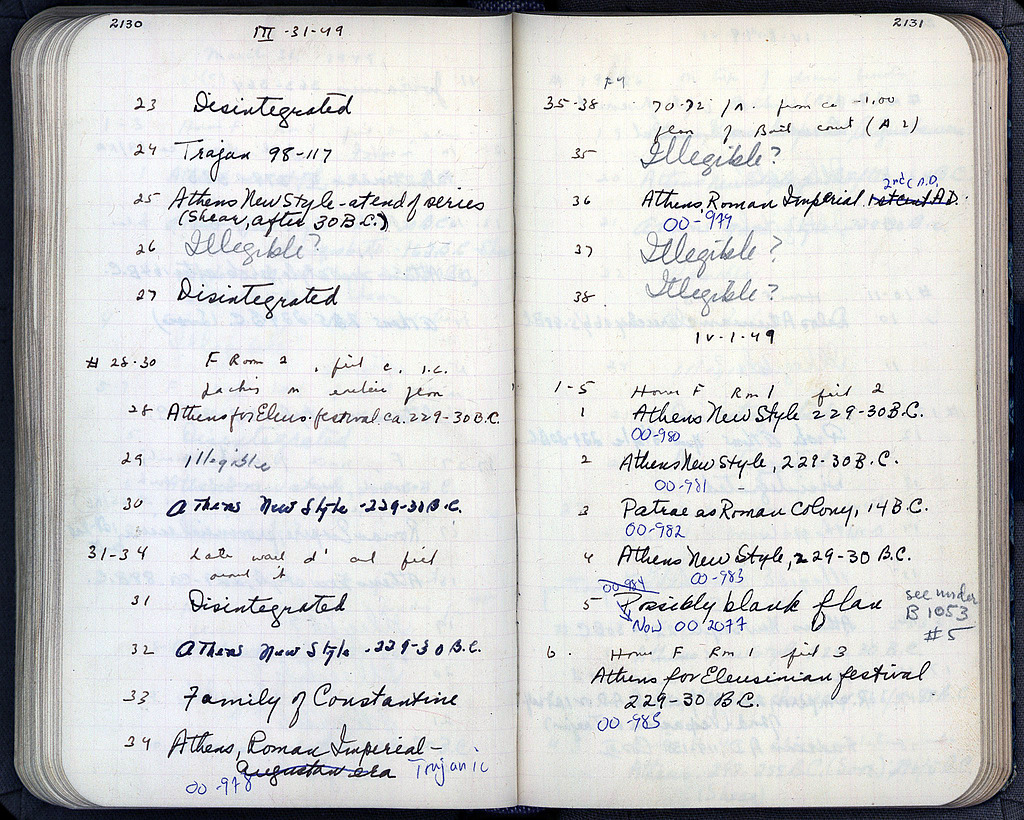 2130
III -31-49
23 Disintegrated
24 Trajan 98-117
25 Athens New Style - at end of series
(Shear, after 30 B.C.)
26 Illegible?
27 Disintegrated
# 28-30 F Room 2, pit c.
28 Athens for Eleus. festival ca. 229-30 B.C.
29 Illegible
30 Athens New Style - 229-30 B.C.
31-34 Late wall d' and pit
around it
31 Disintegrated
32 Athens New Style - 229-30 B.C.
33 Family of Constantine
34 Athens, Roman Imperial -
Augustan era Trajanic
00-978
2131
35-38 70-72 / from ca -1.00
floor of Bail court (A 2)
35 Illegible?
2nd C A.D.
36 Athens, Roman Imperial 1st cent A.D.
00-979
37 Illegible?
38. Illegible?
IV-1-49
1-5 House F Rm 1 pit 2
1 Athens New Style 229-30 B.C.
00-980
2 Athens New Style, 229-30 B.C.
00-981
3 Patrae as Roman Colony, 14 B.C.
00-982
4 Athens New Style, 229-30 B.C.
00-984 00-983
5 Possibly blank flan
Now 00 2077
see under
B 1053
#5
6. House F Rm 1 pit 3
Athens for Eleusinian festival
229-30 B.C.
00-985